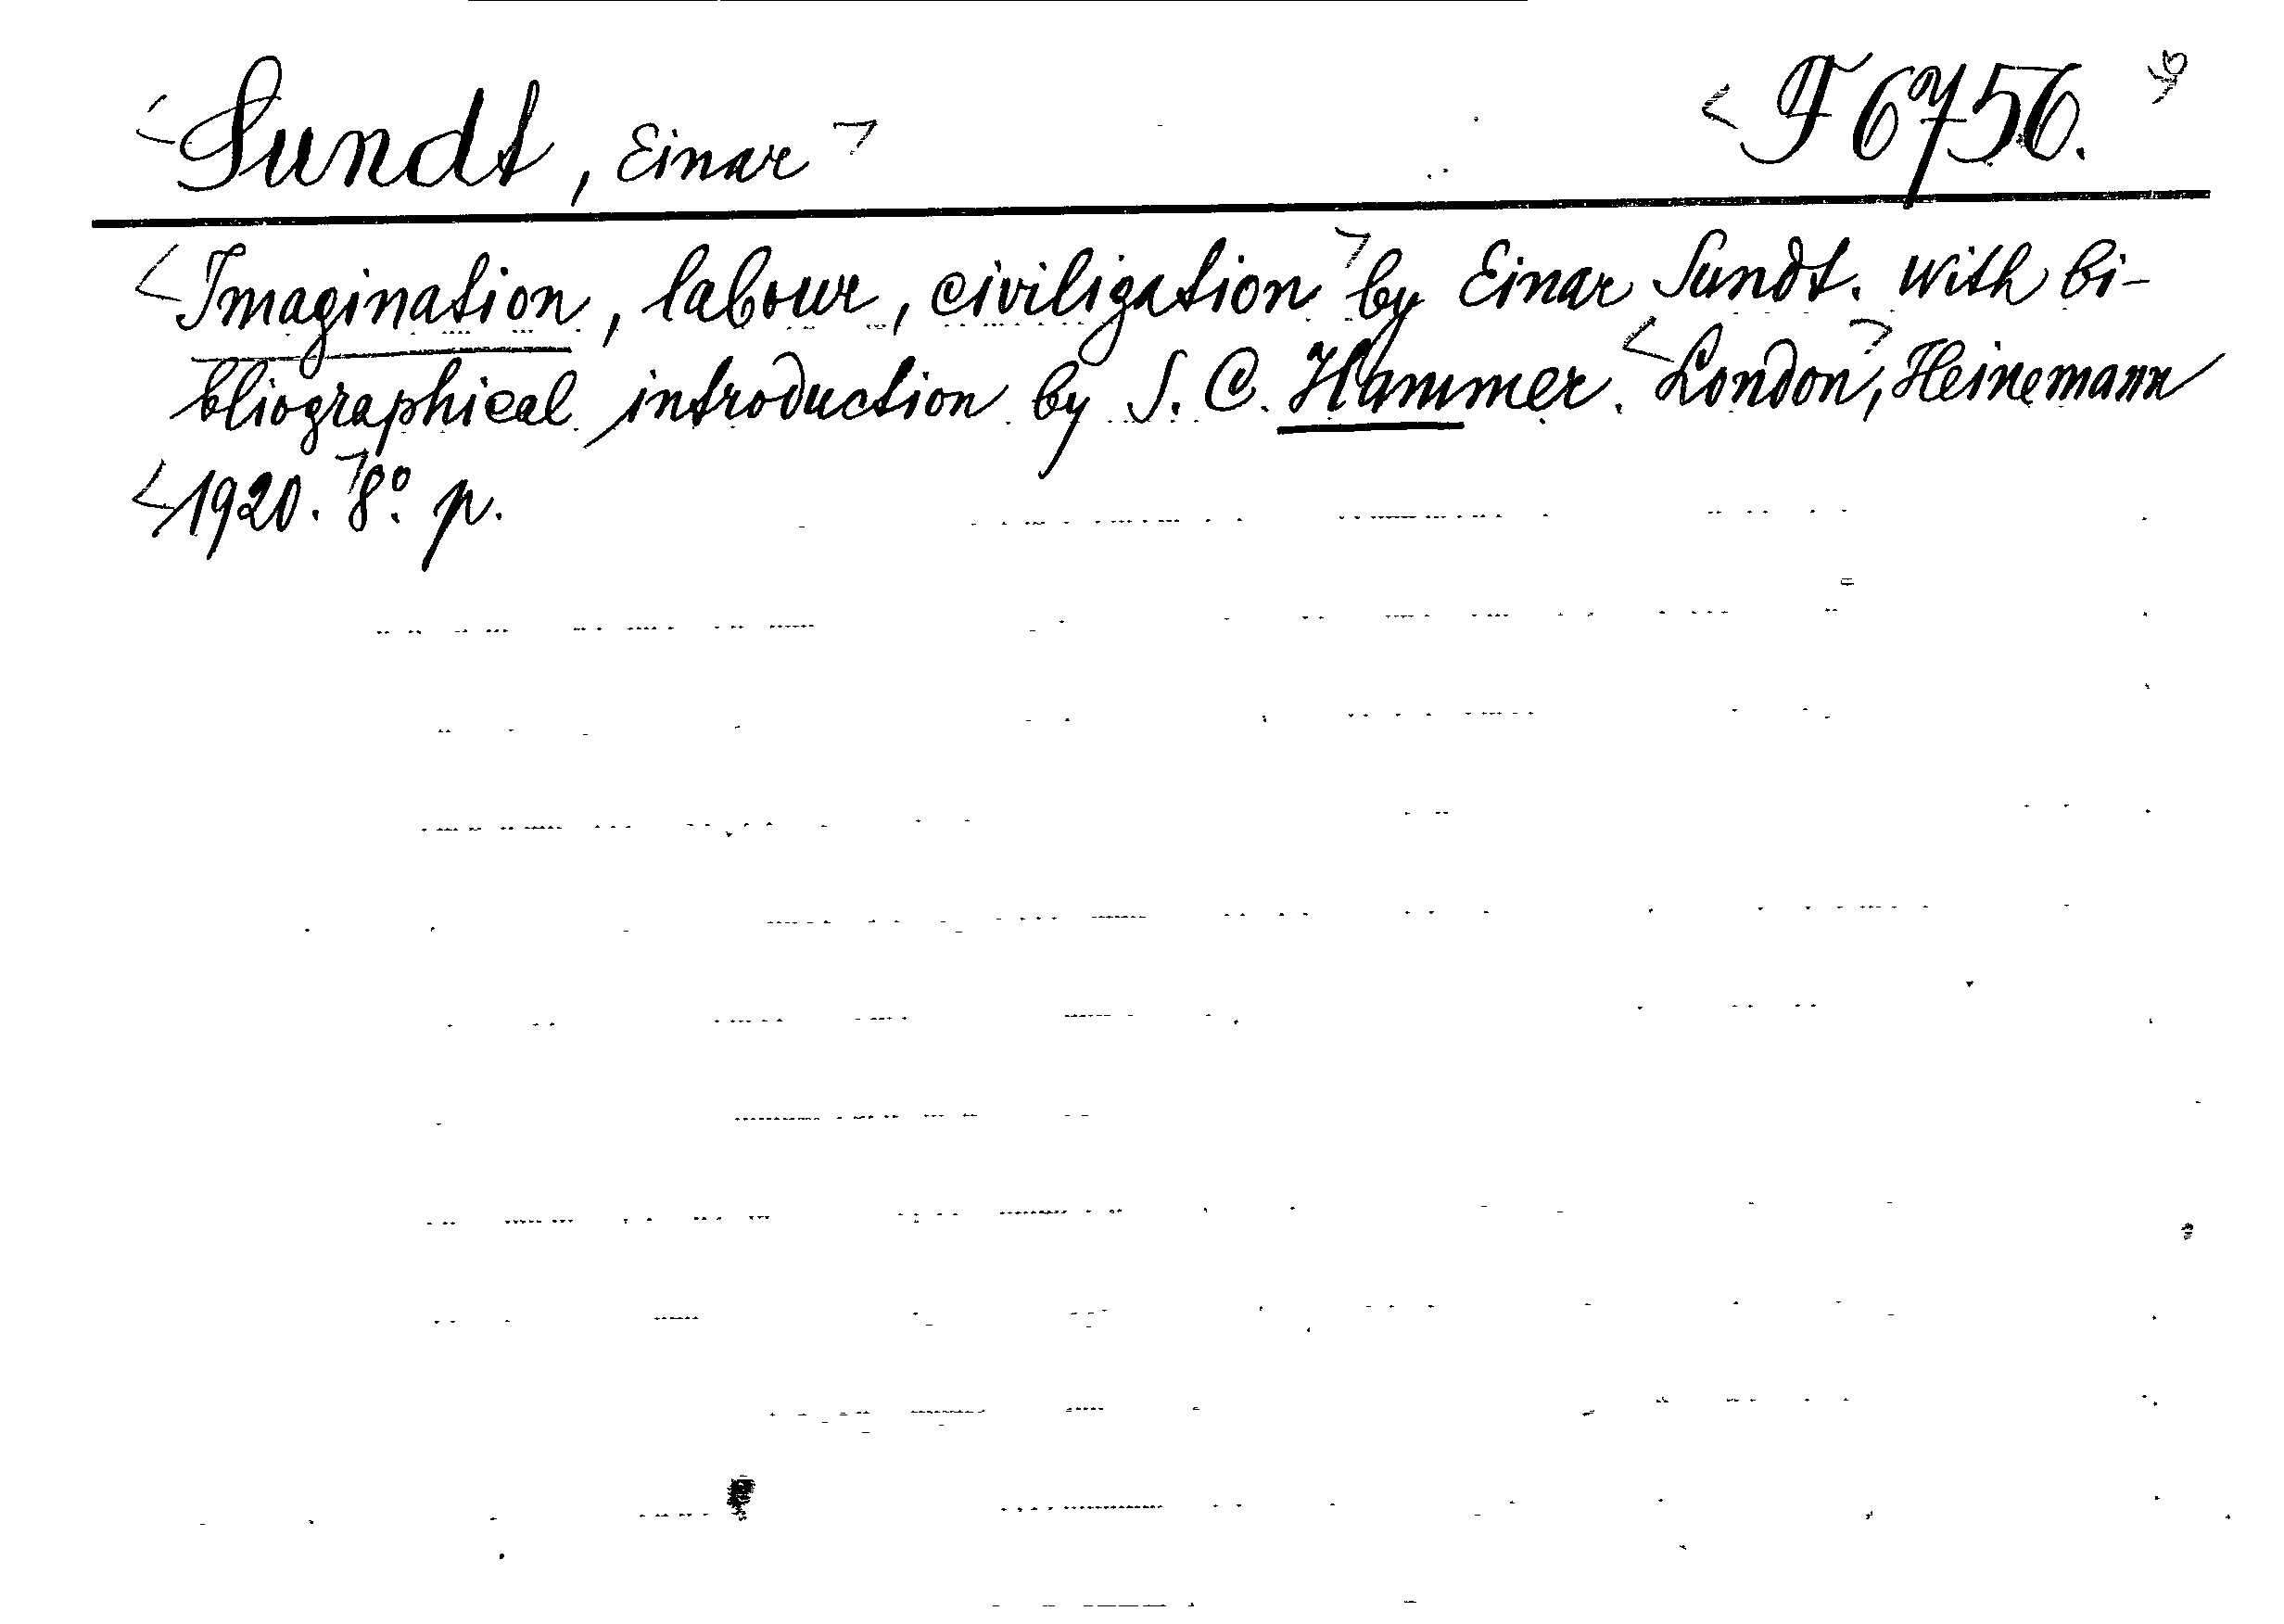 <Sundt, Einar> <F 6756.
<Imagination, labour, civilization> by Einar Sundt. With bi-
bliographical introduction by S. C. Hammer. <London>, Heinemann
<1920.> 8º. p.